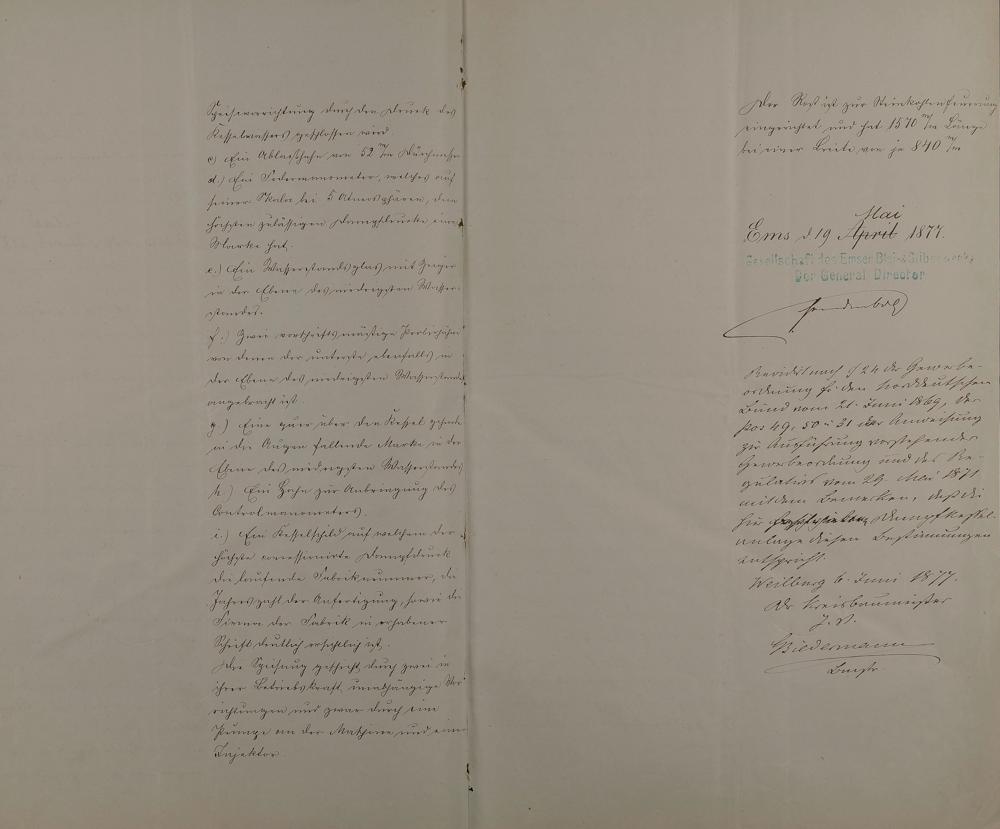 Speisevorrichtung durch den Druck des
Kesselwassers geschlossen wird.
c) Ein Ablasshahn von 52 m/m Durchmesser
d.) Ein Federmanometer, welches auf
seiner Skala bei 5 Atmosphären, dem
höchsten zulässigen Dampfdrucke eine
Marke hat.
e.) Ein Wasserstandsglas mit Zeiger
in der Ebene des niedrigsten Wasser-
standes.
f.) Zwei vorschriftsmäßige Probirhähne
von denen der unterste ebenfalls in
der Ebene des niedrigsten Wasserstandes
angebracht ist
g.) Eine quer über den Kessel gehende
in die Augen fallende Marke in der
Ebene des niedrigsten Wasserstandes
h.) Ein Hahn zur Anbringung des
Controlmanometers.
i.) Ein Kesselschild auf welchem der
höchste concessionirte Dampfdruck
die laufende Fabriknummer, die
Jahreszahl der Anfertigung, sowie die
Firma der Fabrik in erhabener
Schrift deutlich ersichtlich ist.
Die Speisung geschieht durch zwei in
ihrer Betriebskraft unabhängige Vor
richtungen und zwar durch eine
Pumpe an der Maschine und einen
Injektor.
Der Rost ist zur Steinkohlenfeuerung
eingerichtet und hat 1570 m/m Länge
bei einer Breite von je 840 m/m
Mai
Ems d 19 April 1877.
Gesellschaft des Emser Blei- & Silberwerks
Der General Director
Revidirt nach § 24 der Gewerbe-
ordnung f. den Norddeutschen
Bund vom 21. Juni 1869, der
pos 49, 50 u 31 der Anweisung
zur Ausführung vorstehender
Gewerbeordnung und des Re-
gulativs vom 29. Mai 1871
mit dem Bemerken, daß die
hier Dampfkessel-
anlage diesen Bestimmungen
entspricht.
Weilburg 6. Juni 1877.
Der Kreisbaumeister
J. V.
Biedermann
Bmstr.